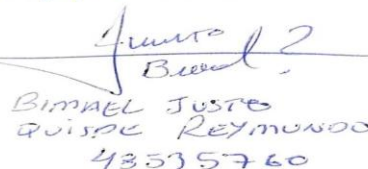 BIMAEL JUSTO
QUISPE REYMUNDO
43535760